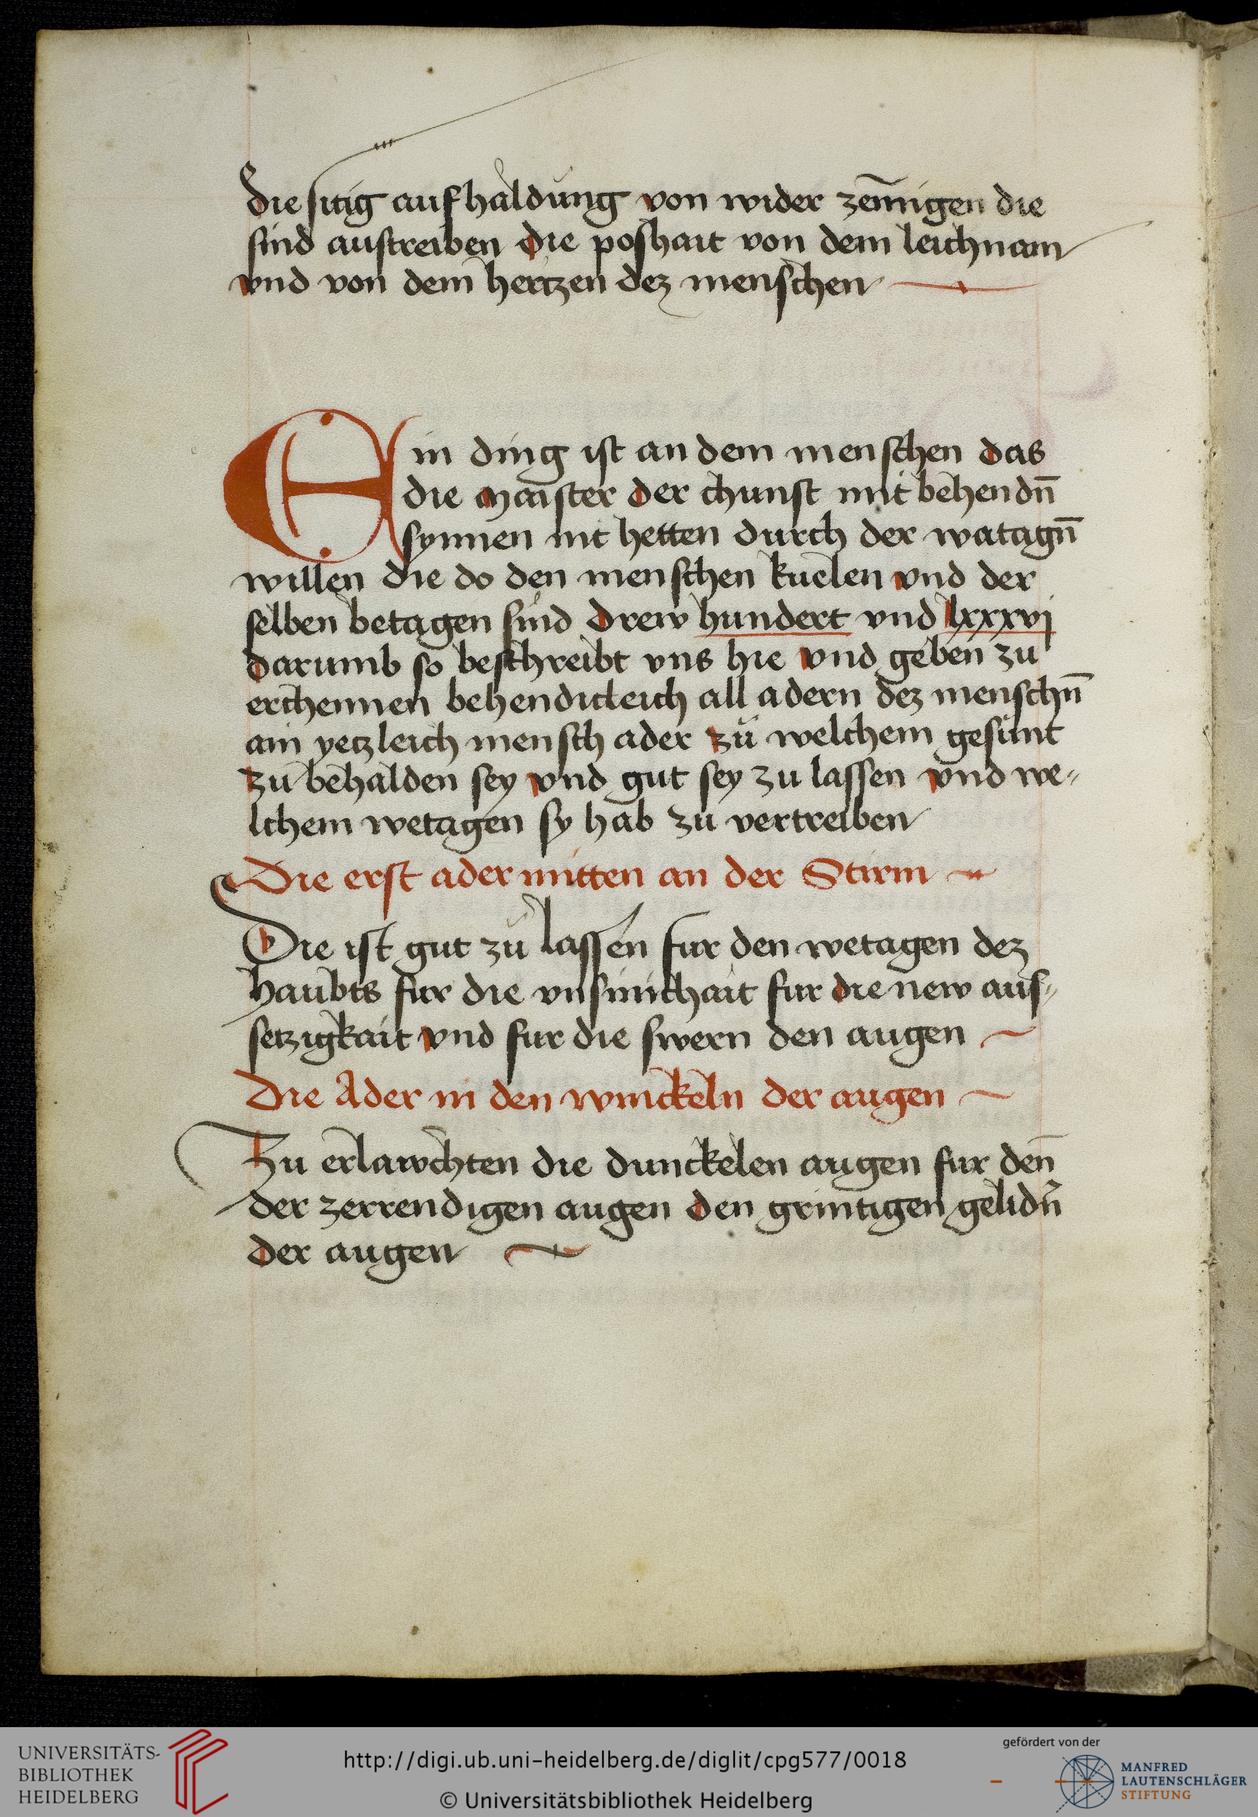 die sitig aufhaldung von wider zem̄igen die
sind austreiben die poshait von dem leichnam
vnd von dem hertzen dez menschen
Ein ding ist an dem menschen das
die maister der chunst mit behendn̄
synnen nit hetten durch der watagn̄
willen die do den menschen kuelen vnd der
selben betagen sind drew hundert vnd lxxxvj
darumb so beschreibt vns hie vnd geben zu
erchennen behendicleich all adern dez menschn̄
ain yetzleich mensch ader zu welchem gesunt
zu behalden sey vnd gut sey zu lassen vnd we-
lchem wetagen sy hab zu vertreiben
Die erst ader mitten an der Stirm
Die ist gut zu lassen fur den wetagen dez
haubts fur die vnsinichait fur die new aus-
setzigkait vnd fur die swern den augen
Die Ader in den winckeln der augen
Zu erlawchten die dunckelen augen fur den̄
der zerrendigen augen den grintigen gelidn̄
der augen
UNIVERSITÄTS-
BIBLIOTHEK
HEIDELBERG
http://digi.ub.uni-heidelberg.de/diglit/cpg577/0018
© Universitätsbibliothek Heidelberg
gefördert von der
MANFRED
LAUTENSCHLÄGER
STIFTUNG